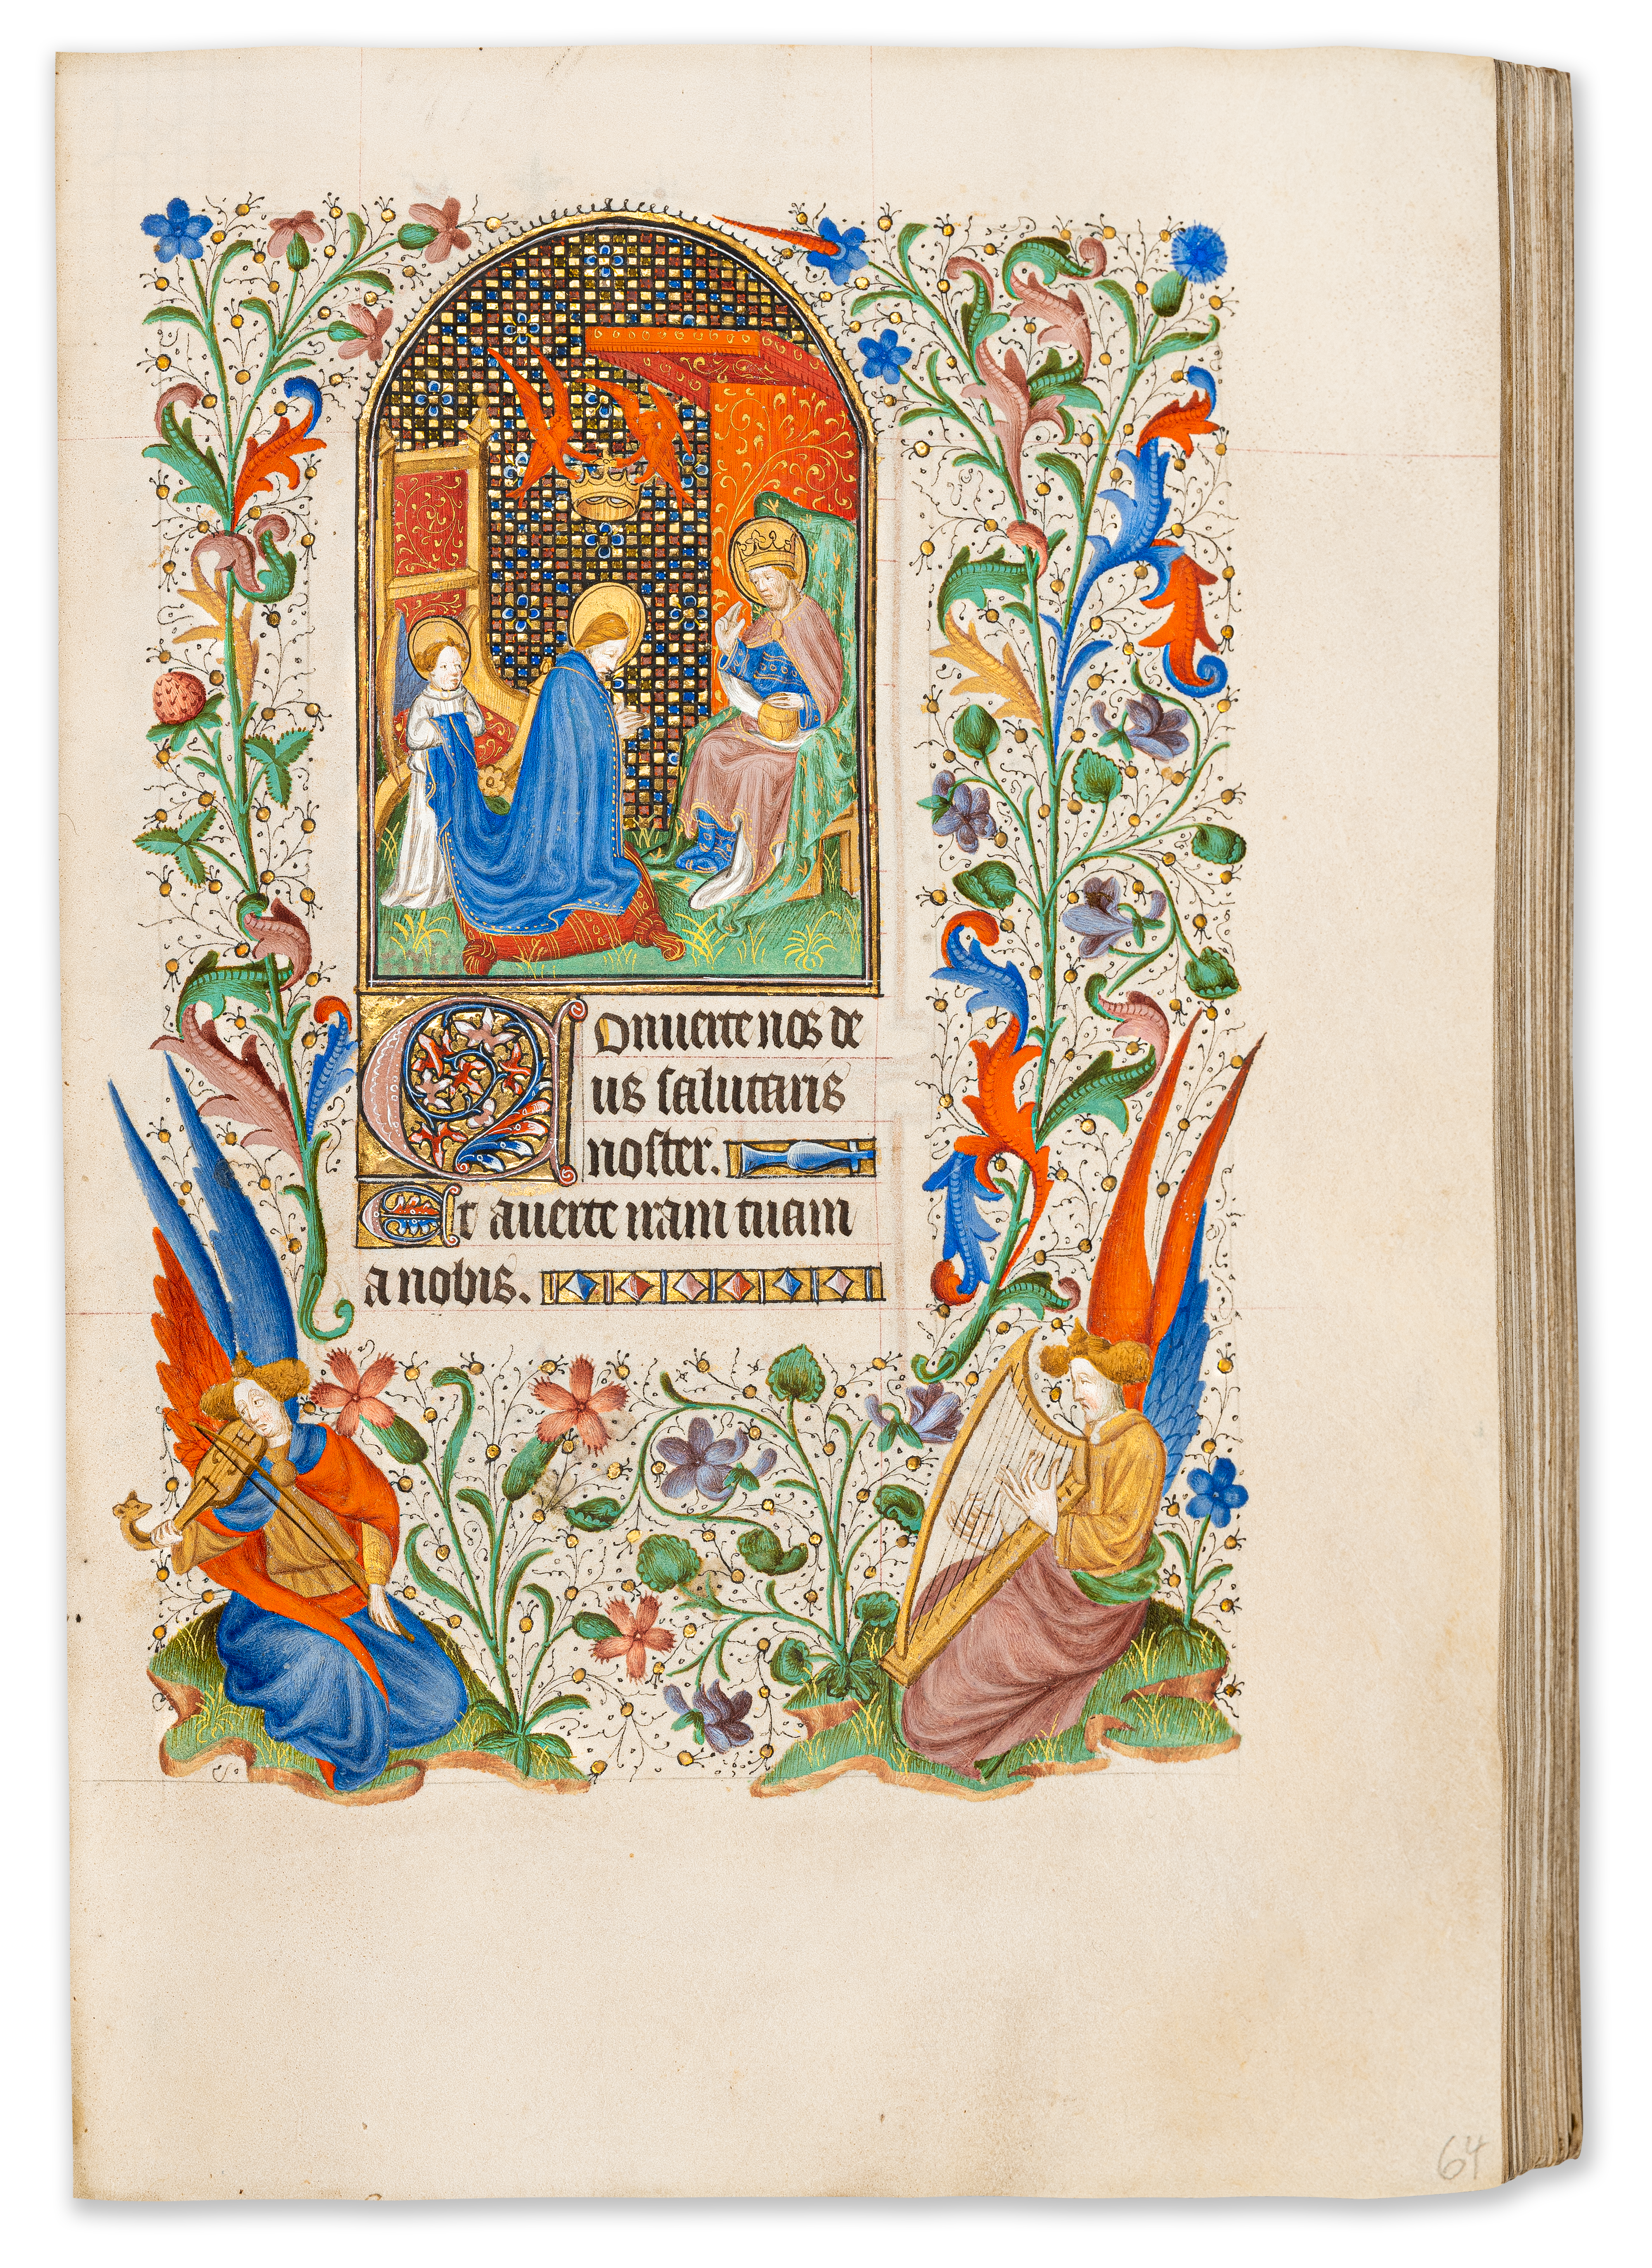 Conuerte nos de
us salutaris
noster.
Et auerte iram tuam
a nobis.
64